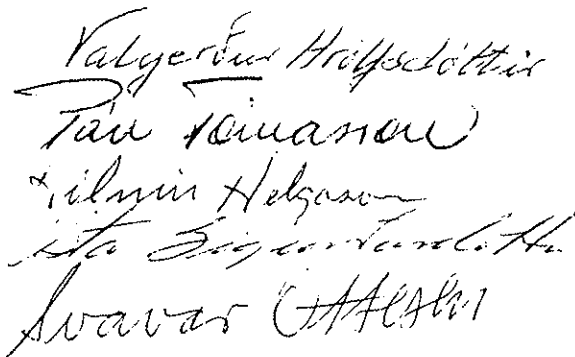 Valgerður Hrólfsdóttir
Páll Tómasson
Hilmir Helgason
Ásta Sigurðardóttir
Svavar Ottesen